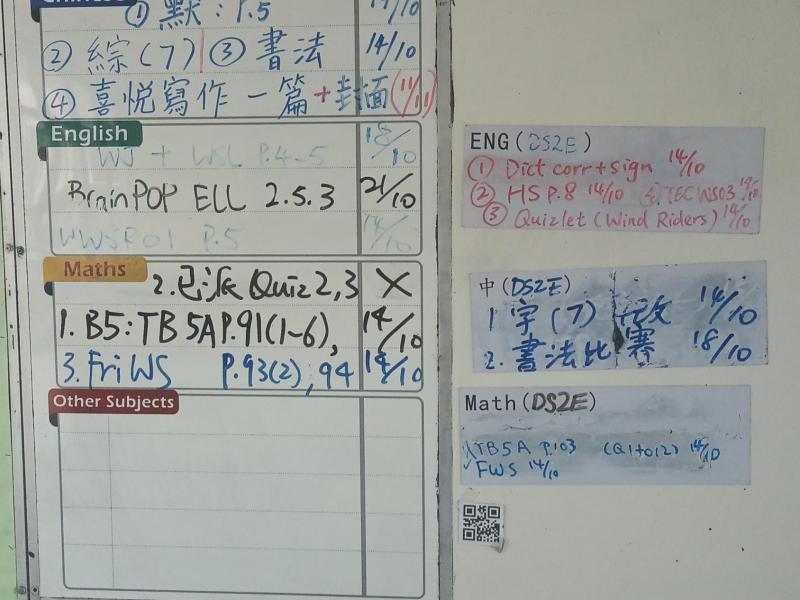 Chinese
① 默: P.5 14/10
② 綜(7) ③ 書法 14/10
④ 喜悅寫作一篇+封面 (11/11)
English
WS + WSL P.4-5 18/10
BrainPOP ELL 2.5.3 21/10
WWSR01 P.5 14/10
Maths
2.已派Quiz 2,3 X
1. B5: TB 5A P.91(1-6), 14/10
3. Fri WS P.93(2), 94 14/10
Other Subjects
ENG (DS2E)
① Dict corr + sign 14/10
② HS P.8 14/10 ④ TEC WS03 14/10
③ Quizlet (Wind Riders) 14/10
中 (DS2E)
1 字(7) 改 14/10
2. 書法比賽 18/10
Math (DS2E)
TB5A P.103 (Q1to12) 14/10
FWS 14/10